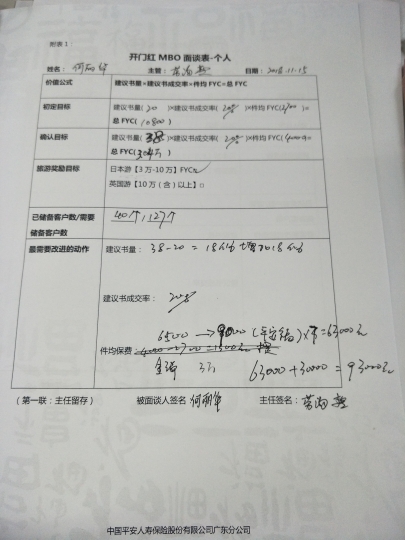 附表1
开门红 MBO 面谈表-个人
姓名： 何丽华 主管： 日期： 2018.11.15
价值公式 建议书量×建议书成交率×件均 FYC=总 FYC
初定目标 建议书量( 20 )×建议书成交率( 20% )×件均 FYC(2700 )=
总 FYC( 10800 )
确认目标 建议书量( 38 )×建议书成交率( 20% )×件均 FYC(4000)=
总 FYC(3.04万 )
旅游奖励目标 日本游【3 万-10 万】FYC☑
英国游【10 万（含）以上】□
已储备客户数/需要
储备客户数 40个/127个
最需要改进的动作 建议书量： 38-20 = 18 增加18
建议书成交率： 20%
6500 → 9000 (平安福)×7=63000元
件均保费： 4000-2700=1300元
3万 63000+30000=93000元
（第一联：主任留存） 被面谈人签名：何丽华 主任签名：
中国平安人寿保险股份有限公司广东分公司